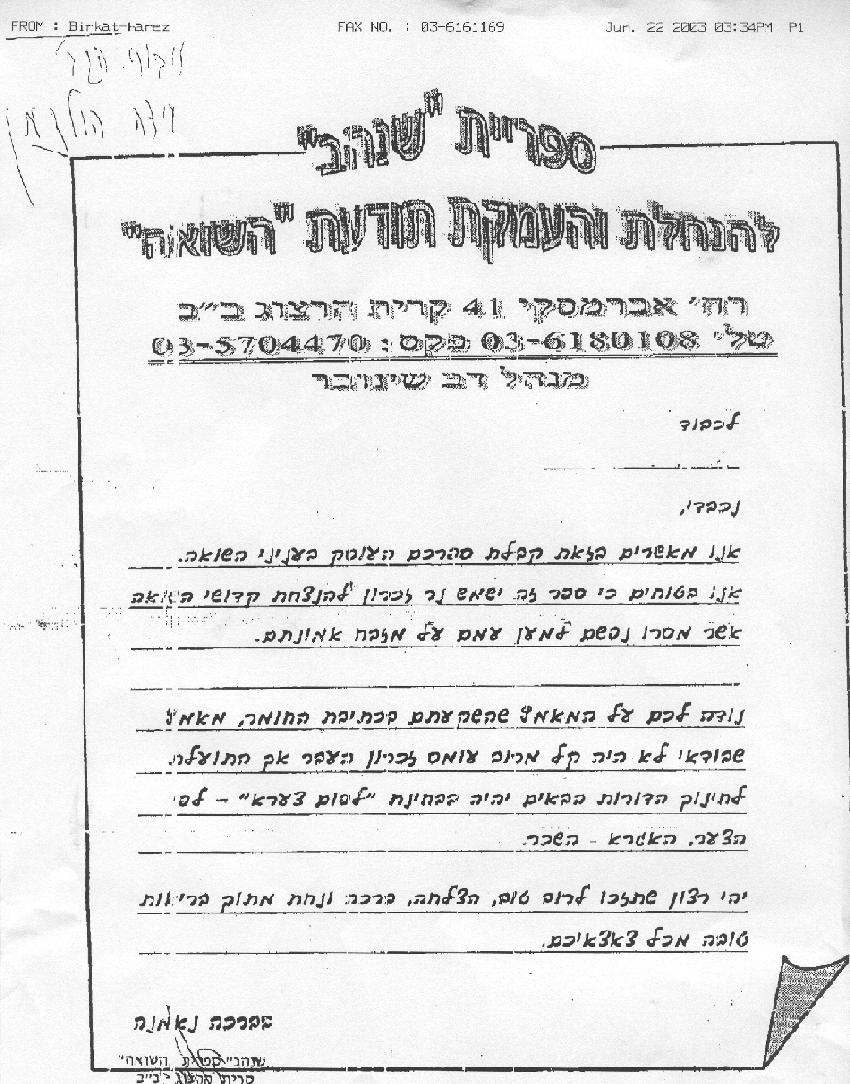 FROM : Birkat-Harez FAX NO. : 03-6161169 Jun. 22 2003 03:34PM P1
ספריית "שנהבי"
להנחלת והעמקת תודעת "השואה"
רח' אברמסקי 41 קרית הרצוג ב"ב
טל' 03-6180108 פקס: 03-5704470
מנהל דב שינהבר
לכבוד
נכבדי,
אנו מאשרים בזאת קבלת ספרכם העוסק בעניני השואה.
אנו בטוחים כי ספר זה ישמש נר זכרון להנצחת קדושי השואה
אשר מסרו נפשם למען עמם על מזבח אמונתם.
נודה לכם על המאמץ שהשקעתם בכתיבת החומר, מאמץ
שבודאי לא היה קל מרוב עומס זכרון העבר אך התועלת
לחינוך הדורות הבאים יהיה בבחינת "לפום צערא" - לפי
הצער, האגרא - השכר.
יהי רצון שתזכו לרוב טוב, הצלחה, ברכה ונחת מתוך בריאות
טובה מכל צאצאיכם.
בברכה נאמנה
"שנהבי" ספרית השואה
קרית הרצוג ב"ב